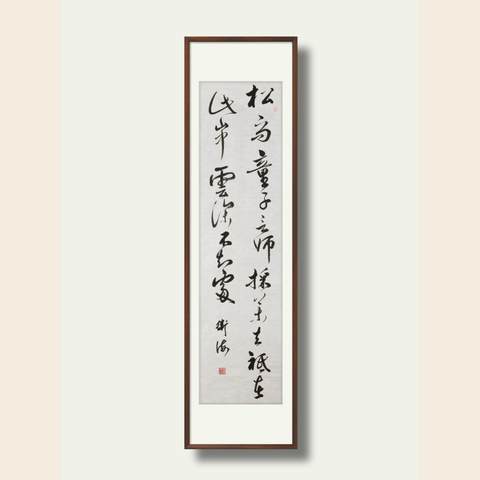 松下問童子言師採藥去祇在
此山中雲深不知處